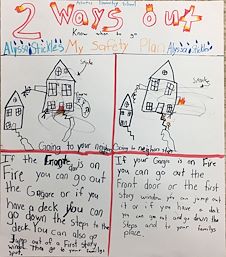 2 Ways out
Know when to go
Alyssa Stickles My Safety Plan Alyssa Stickles
Smoke
Smoke
Going to your neighbors
Going to neighbors
If the Front door is on
Fire you can go out
the Garage or if you
have a deck you can
go down the steps to the
deck You can also go
Jump out of a First story
window. Then go to your familys
spot.
If your Garage is on Fire
you can go out the
Front door or the first
story window you can jump out
it or if you have a deck
you can go out and go down the
Steps and to your familys
place.